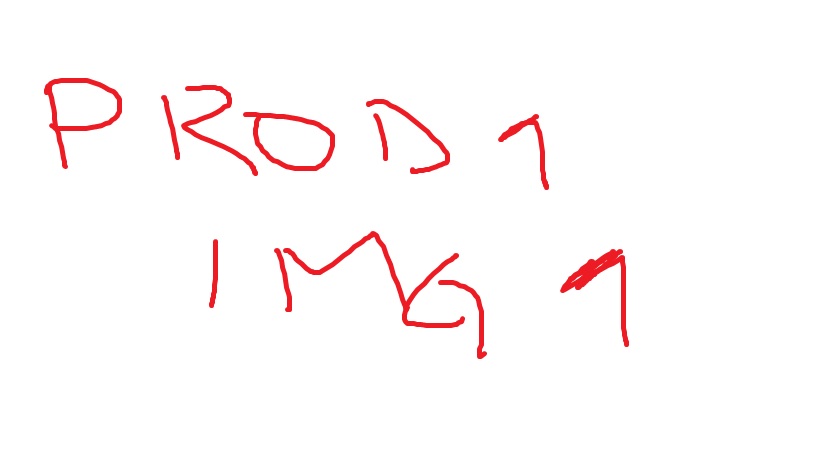 PROD 1
IMG 1